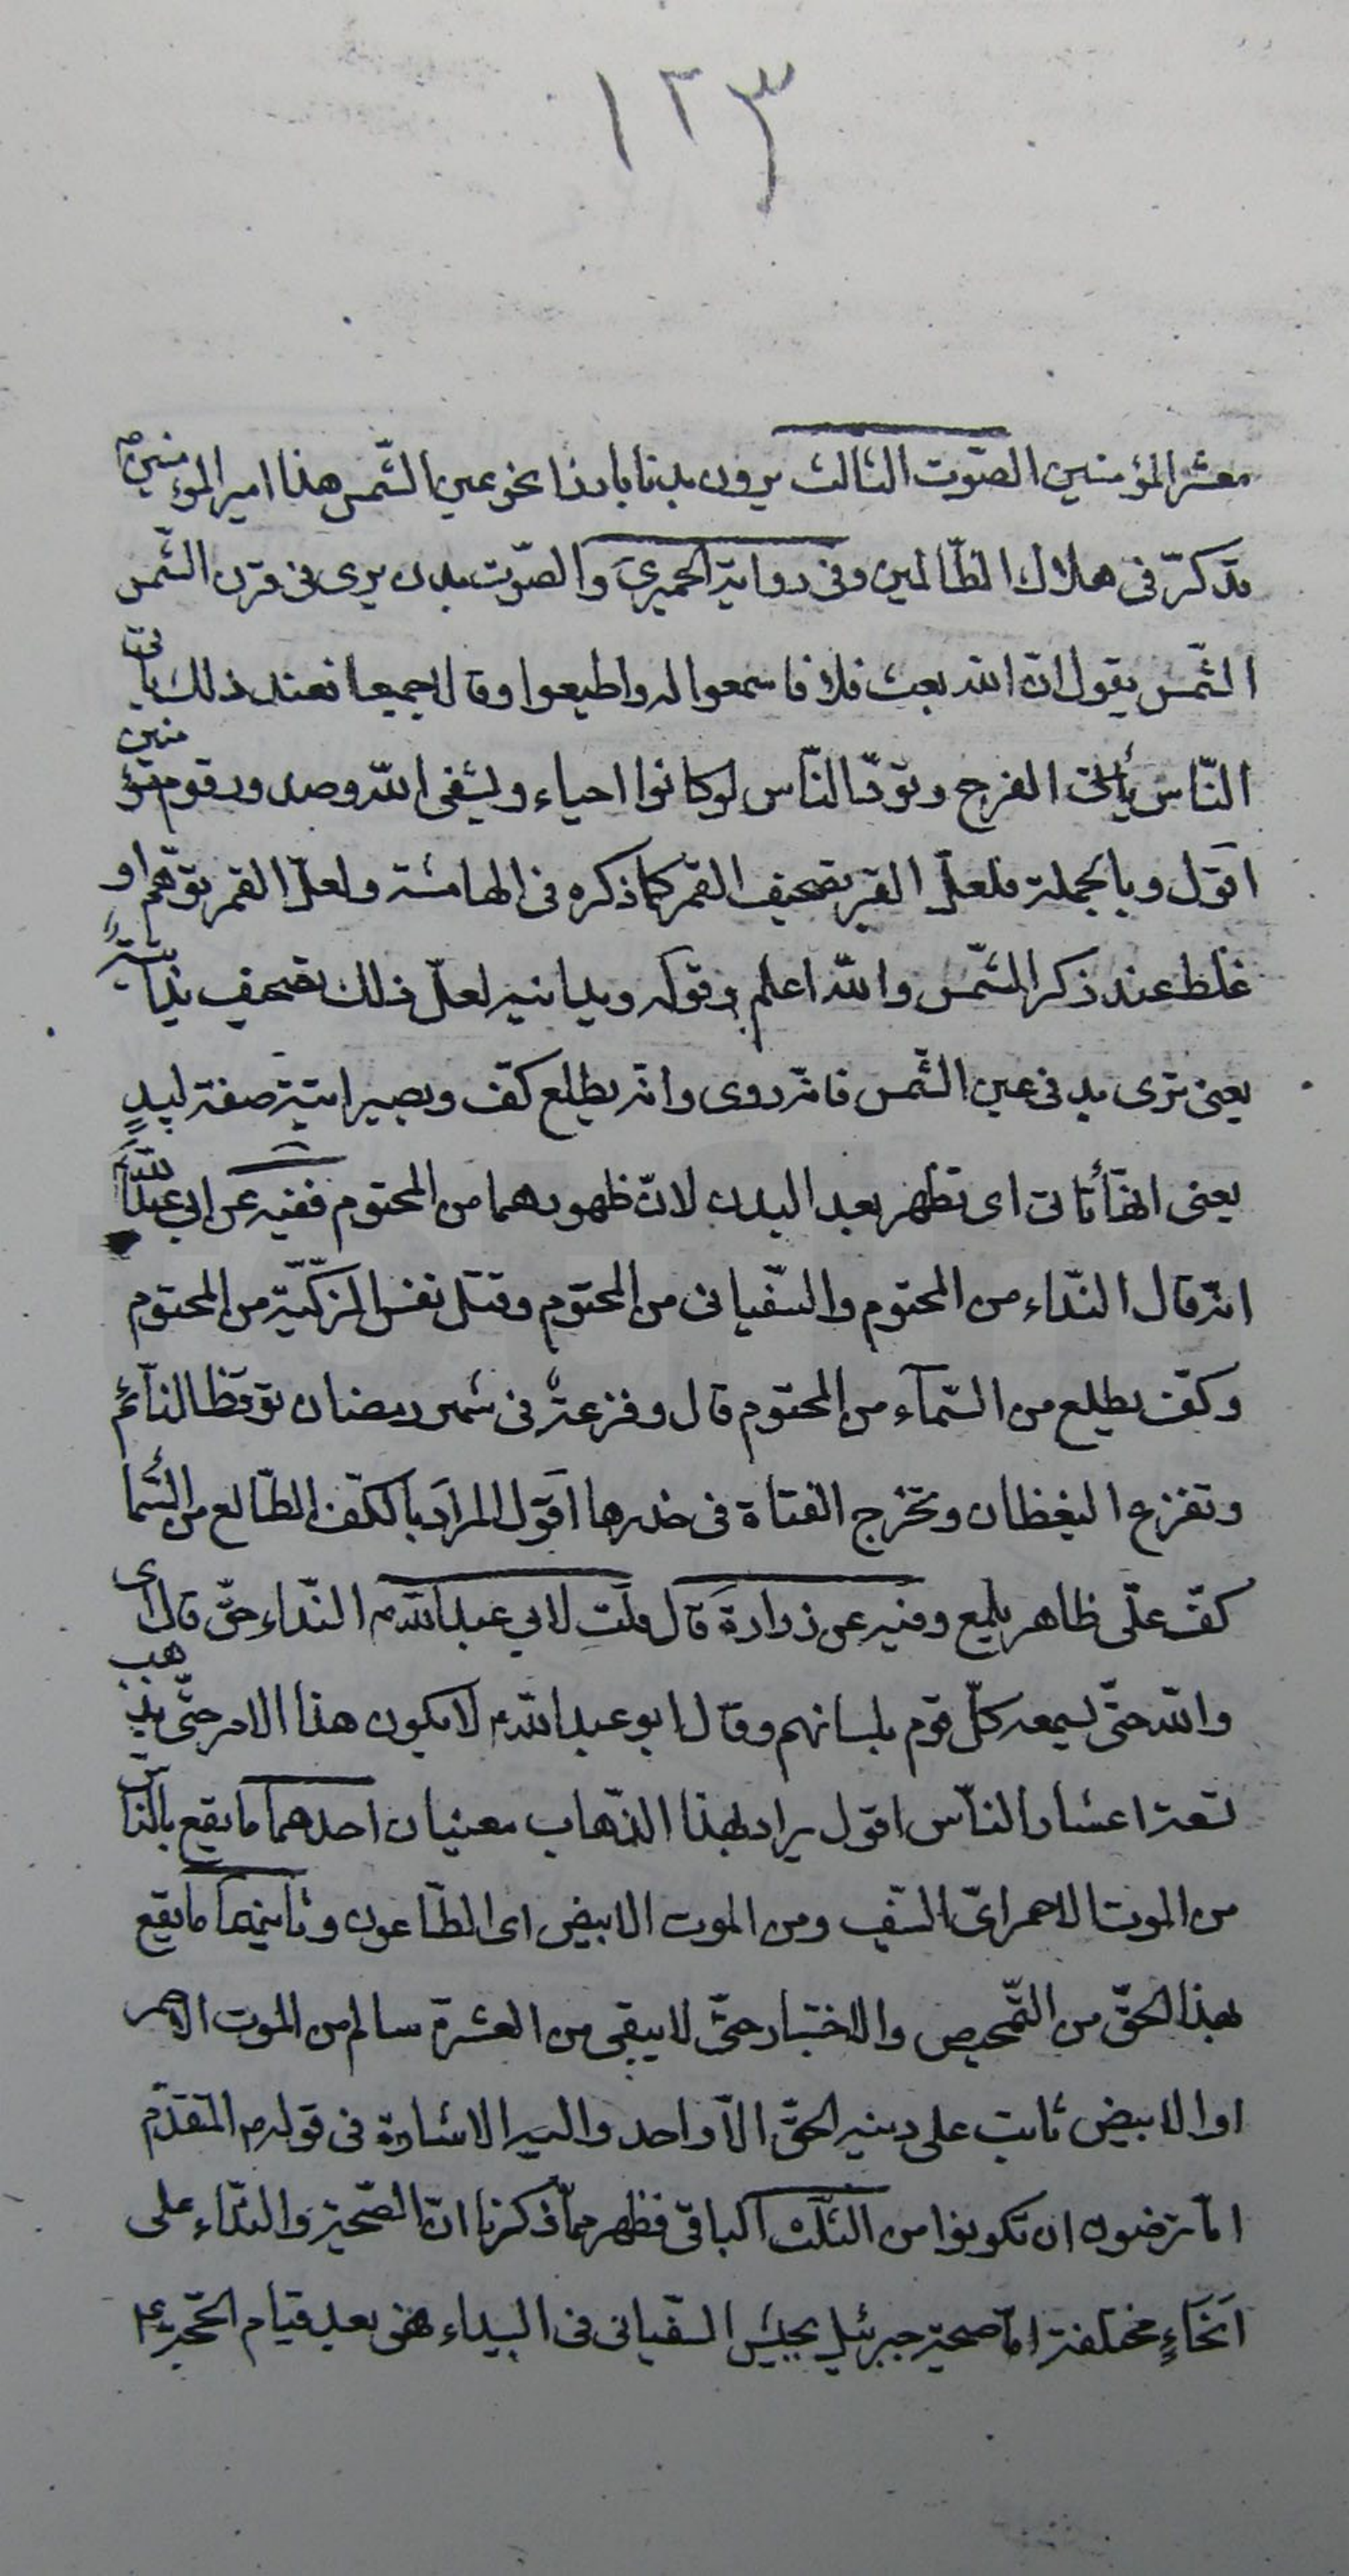 ١٢٣
معشر المؤمنين الصّوت الثالث يرون بدنا بارزا نحو عين الشّمس هذا امير المؤمنين
قد كرّ فى هلاك الظّالمين وفى رواية الحميرى والصّوت بدن يرى فى قرن الشّمس
الشّمس يقول انّ الله بعث فلانا فاسمعوا له واطيعوا وقالا جميعا فعند ذلك يأتى
النّاس الفرج وتودّ النّاس لو كانوا احياء ويشفى الله صدور قوم مؤمنين
اقول وبالجملة فلعلّ القبر تصحيف القمر كما ذكره فى الهامشه ولعلّ القمر توهّم او
غلط عند ذكر الشّمس والله اعلم وقوله لعلّ ذلك تصحيف
يعنى ترى يد فى عين الشّمس فانه روى وانه يطلع كفّ ويصير اتية صفة ليدٍ
يعنى انها تأتى اى تظهر بعد البدن لانّ ظهورهما من المحتوم ففيه عن ابى عبدالله
انّه قال النّداء من المحتوم والسّفيانى من المحتوم وقتل نفس المزكيّة من المحتوم
وكفّ يطلع من السّمآء من المحتوم قال وفزعة فى شهر رمضان توقظ النآئم
وتفزع اليغظان وتخرج الفتاة فى خدرها اقول المراد بالكفّ الطّالع من السّما
كفّ علّى ظاهر يلمع وفيه عن زرارة قال قلت لابي عبدالله النّداء حقّ قال اى
والله حتّى يسمعه كلّ قوم بلسانهم وقال ابو عبدالله لا يكون هذا الامر حتّى يذهب
تسعة اعشار النّاس اقول يراد بهذا الذّهاب معنيان احدهما ما يقع بالنّاس
من الموت الاحمر اىّ السّيف ومن الموت الابيض اى الطّاعون وثانيهما ما يقع
بهذا الحقّ من التّمحيص والاختبار حتّى لا يبقى من العشرة سالم من الموت الاحمر
او الابيض ثابت على دينه الحقّ الاّ واحد واليه الاشارة فى قوله المتقدّم
امّا ترضون ان تكونوا من الثّلث الباقى فظهر ممّا ذكرنا انّ الصّيحة والنّداء على
انحآءٍ مختلفة امّا صيحة جبرئيل بجيش السّفيانى فى البيداء فهى بعد قيام الحجّة